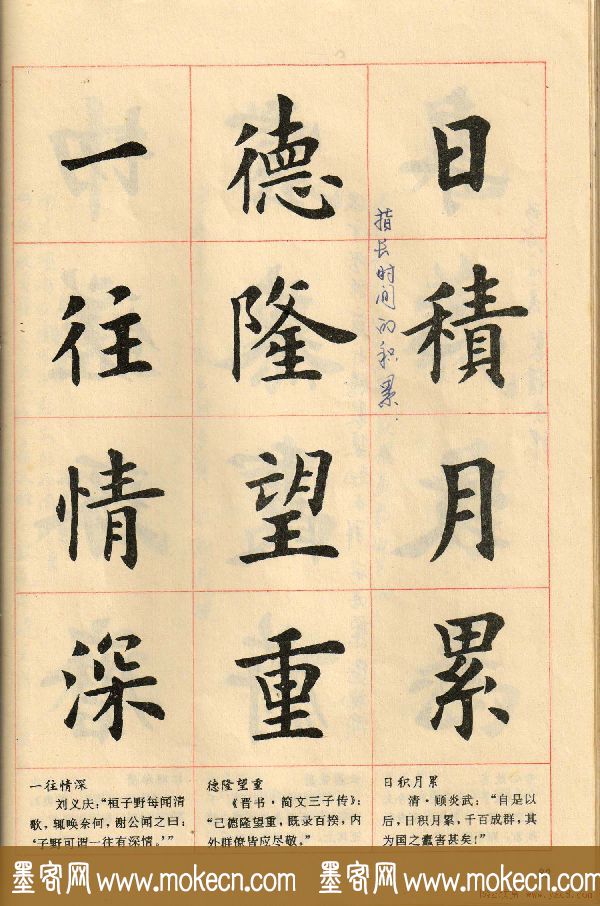 日積月累
指长时间的积累.
德隆望重
一往情深
日积月累
清·顾炎武：“自是以
后，日积月累，千百成群，其
为国之蠹害甚矣！”
德隆望重
《晋书·简文三子传》：
“己德隆望重，既录百揆，内
外群僚皆应尽敬。”
一往情深
刘义庆：“桓子野每闻清
歌，辄唤奈何，谢公闻之曰：
‘子野可谓一往有深情。’”
墨客网 www.mokecn.com 墨客网 www.mokecn.com